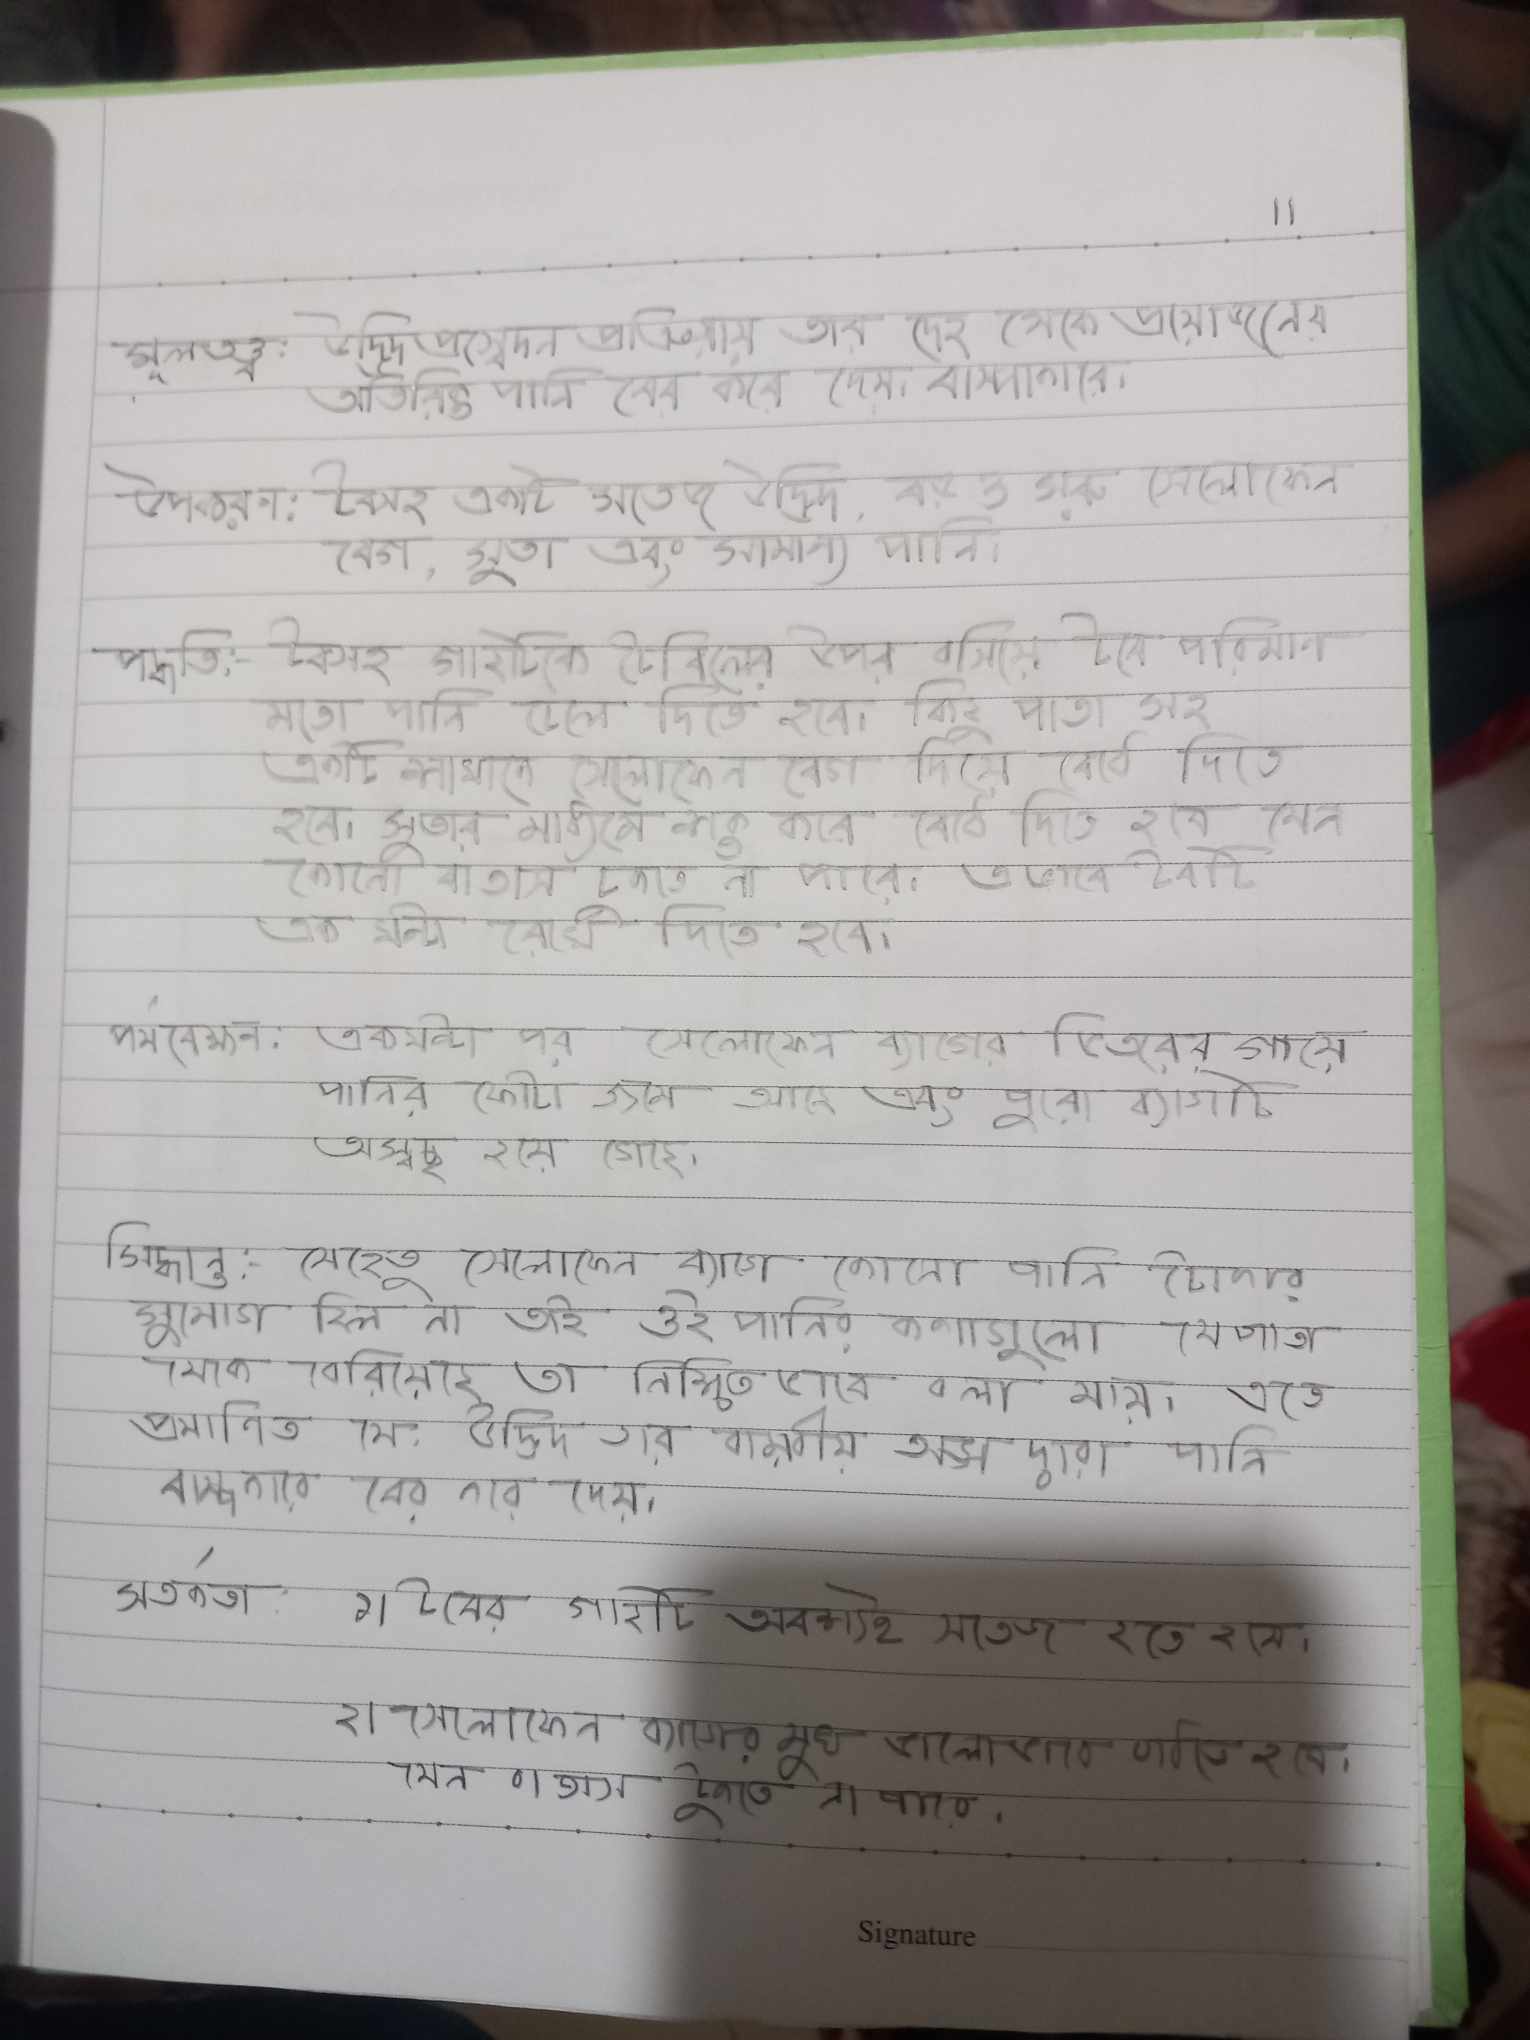 11
মূলতত্ত্ব: উদ্ভিদ প্রস্বেদন প্রক্রিয়ায় তার দেহ থেকে প্রয়োজনের
অতিরিক্ত পানি বের করে দেয়। বাষ্পাকারে।
উপকরণ: টবসহ একটি সতেজ উদ্ভিদ, বড় ও সরু সেলোফেন
বেগ, সুতা এবং সামান্য পানি।
পদ্ধতি:- টবসহ গাছটিকে টেবিলের উপর বসিয়ে টবে পরিমান
মতো পানি ঢেলে দিতে হবে। কিছু পাতা সহ
একটি শাখাকে সেলোফেন বেগ দিয়ে বেধে দিতে
হবে। সুতার মাধ্যমে শক্ত করে বেধে দিতে হবে যেন
কোনো বাতাস ঢুকতে না পারে। এভাবে টবটি
এক ঘন্টা রেখে দিতে হবে।
পর্যবেক্ষন: একঘন্টা পর সেলোফেন ব্যাগের ভিতরের গায়ে
পানির ফোটা জমে আছে এবং পুরো ব্যাগটি
অস্বচ্ছ হয়ে গেছে।
সিদ্ধান্ত:- যেহেতু সেলোফেন ব্যাগে কোনো পানি ঢোকার
সুযোগ ছিল না তাই ওই পানির কণাগুলো যে পাতা
থেকে বেরিয়েছে তা নিশ্চিত ভাবে বলা যায়। এতে
প্রমানিত যে: উদ্ভিদ তার বায়বীয় অঙ্গ দ্বারা পানি
বাষ্পকারে বের করে দেয়।
সতর্কতা: ১। টবের গাছটি অবশ্যই সতেজ হতে হবে।
২। সেলোফেন ব্যাগের মুখ ভালোভাবে বাধতে হবে।
যেন বাতাস ঢুকতে না পারে।
Signature